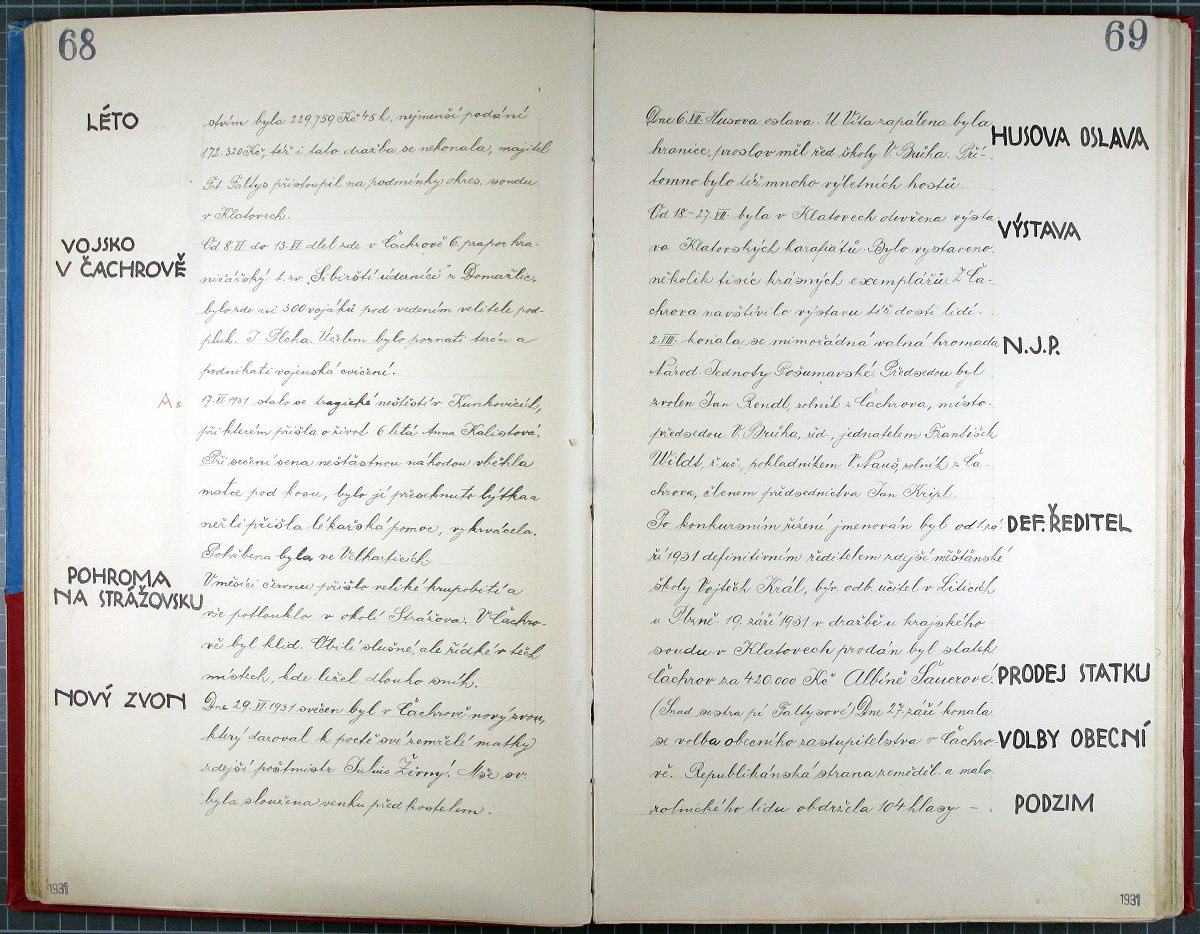 68
LÉTO
stvím byla 229,759 Kč 45 h, nejmenší podání
172.320 Kč, též i tato dražba se nekonala, majitel
Frt. Faltys přistoupil na podmínky okres. soudu
v Klatovech.
VOJSKO
V ČACHROVĚ
Od 8.VI. do 13.VI dlel zde v Čachrově 6. prapor hra-
ničářský t. zv. „Sibirští úderníci" z Domažlic,
bylo zde asi 300 vojáků pod vedením velitele pod-
pluk. J. Plcha. Účelem bylo poznati terén a
podnikati vojenská cvičení.
As.
17.VI 1931 stalo se tragické neštěstí v Kunkovicích,
při kterém přišla o život 6 letá Anna Kalistová.
Při sečení sena nešťastnou náhodou vběhla
matce pod kosu, bylo jí přeseknuto lýtko a
nežli přišla lékařská pomoc, vykrvácela.
Pohřbena byla ve Velharticích.
POHROMA
NA STRÁŽOVSKU
V měsíci červnu přišlo veliké krupobití a
vše potlouklo v okolí Strážova. V Čachro-
vě byl klid. Obilí slušné, ale řídké v těch
místech, kde ležel dlouho sníh.
NOVÝ ZVON
Dne 29.VI 1931 svěcen byl v Čachrově nový zvon,
který daroval k poctě své zemřelé matky
zdejší poštmistr Julius Žirný. Mše sv.
byla sloužena venku před kostelem.
1931
69
Dne 6.VII. Husova oslava. U Víta zapálena byla
HUSOVA OSLAVA
hranice, proslov měl řed. školy V. Bruha. Pří-
tomno bylo též mnoho výletních hostů.
Od 18.-27.VII. byla v Klatovech otevřena výsta
VÝSTAVA
va Klatovských karafiátů. Bylo vystaveno
několik tisíc krásných exemplářů. Z Ča-
chrova navštívilo výstavu též dosti lidí.
2.VIII. konala se mimořádná valná hromada
N.J.P.
Národ. Jednoty Pošumavské. Předsedou byl
zvolen Jan Rendl, rolník z Čachrova, místo-
předsedou V. Bruha, řed., jednatelem František
Wildt, ř. uč., pokladníkem V. Nauš, rolník z Ča-
chrova, členem předsednictva Jan Kripl.
Po konkursním řízení jmenován byl od 1. zá
DEF. ŘEDITEL
ří 1931 definitivním ředitelem zdejší měšťánské
školy Vojtěch Král, býv. odb. učitel v Liticích
u Plzně. 19. září 1931 v dražbě u krajského
soudu v Klatovech prodán byl statek
Čachrov za 420.000 Kč Albíně Sauerové.
PRODEJ STATKU
(Snad sestra pí Faltysové) Dne 27. září konala
se volba obecního zastupitelstva v Čachro-
VOLBY OBECNÍ
vě. Republikánská strana zeměděl. a malo.
rolnického lidu obdržela 104 hlasy –
PODZIM
1931